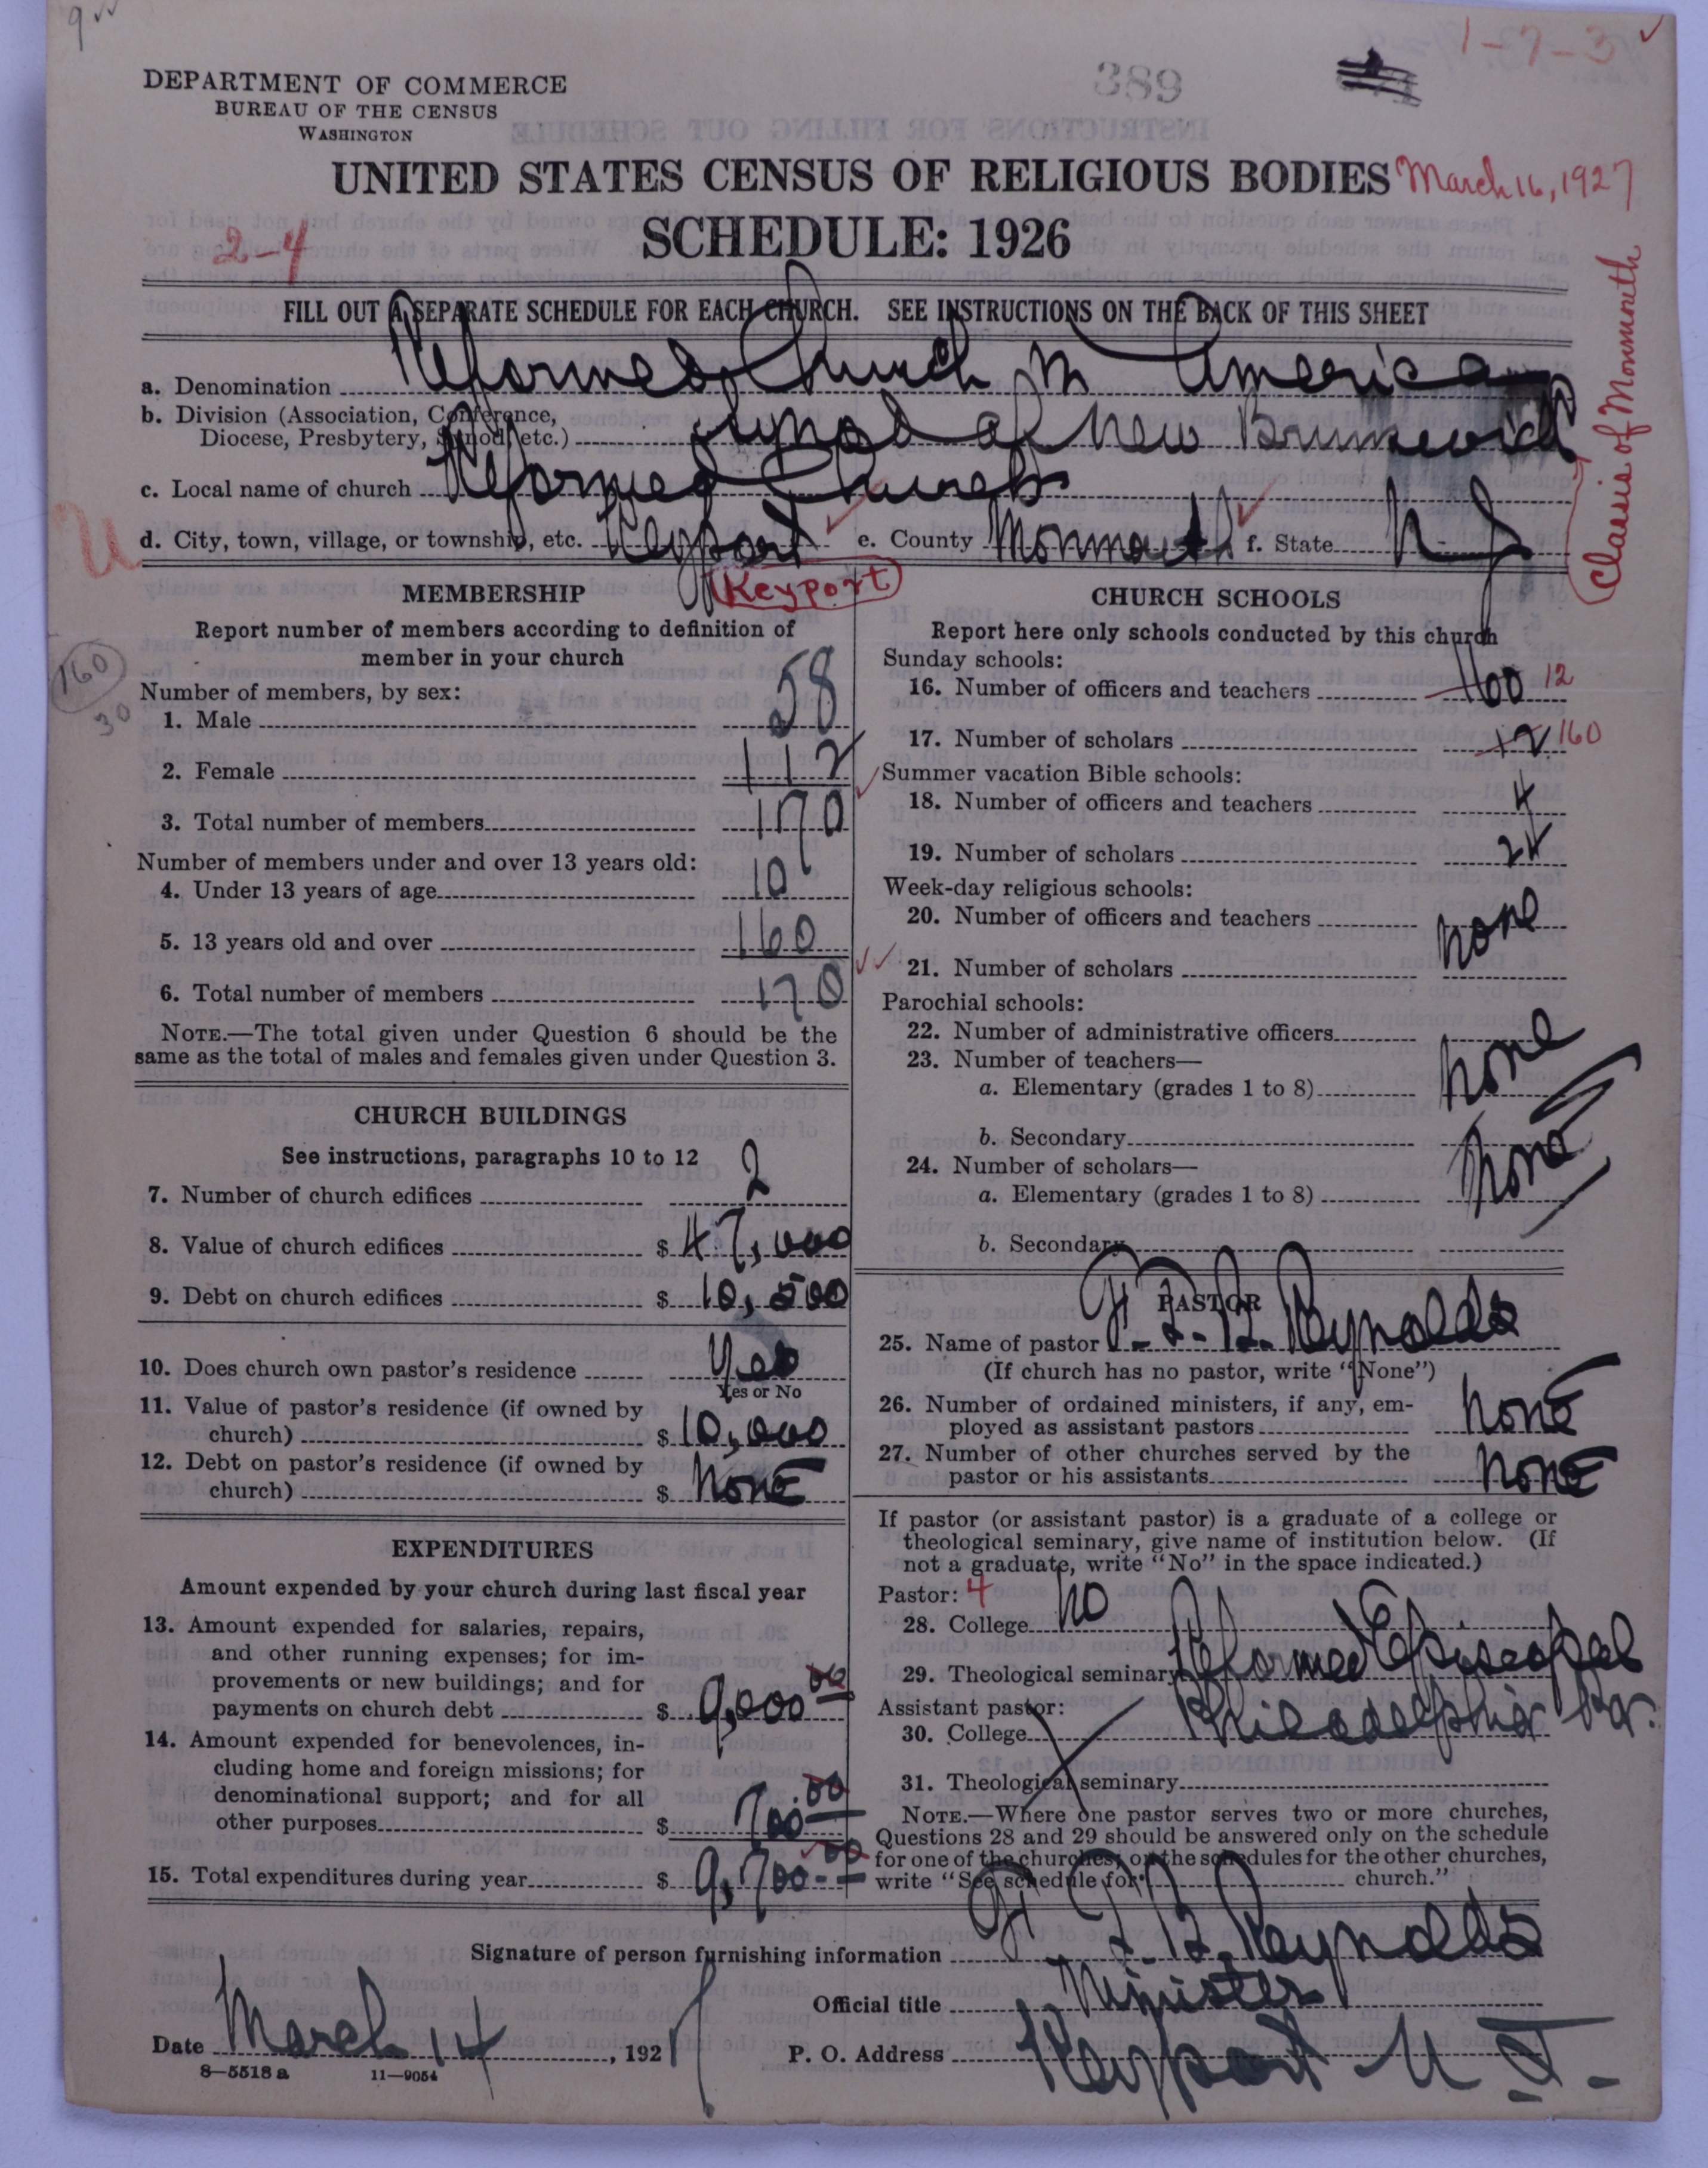 9
1-7-3
DEPARTMENT OF COMMERCE
BUREAU OF THE CENSUS
WASHINGTON
389
UNITED STATES CENSUS OF RELIGIOUS BODIES March 16, 1927
SCHEDULE: 1926
2-4
FILL OUT A SEPARATE SCHEDULE FOR EACH CHURCH. SEE INSTRUCTIONS ON THE BACK OF THIS SHEET
a. Denomination Reformed Church in America
b. Division (Association, Conference,
Diocese, Presbytery, Synod, etc.) Synod of New Brunswick
Classis of Monmouth
c. Local name of church Reformed Church
U
d. City, town, village, or township, etc. Keyport e. County Monmouth f. State N J
Keyport
MEMBERSHIP
Report number of members according to definition of
member in your church
160
30
Number of members, by sex:
1. Male 58
2. Female 112
3. Total number of members 170
Number of members under and over 13 years old:
4. Under 13 years of age 10
5. 13 years old and over 160
6. Total number of members 170
NOTE.—The total given under Question 6 should be the
same as the total of males and females given under Question 3.
CHURCH BUILDINGS
See instructions, paragraphs 10 to 12
7. Number of church edifices 2
8. Value of church edifices $ 47,000
9. Debt on church edifices $ 10,500
10. Does church own pastor's residence Yes
Yes or No
11. Value of pastor's residence (if owned by
church) $ 10,000
12. Debt on pastor's residence (if owned by
church) $ NONE
EXPENDITURES
Amount expended by your church during last fiscal year
13. Amount expended for salaries, repairs,
and other running expenses; for im-
provements or new buildings; and for
payments on church debt $ 9,000 00
14. Amount expended for benevolences, in-
cluding home and foreign missions; for
denominational support; and for all
other purposes $ 700.00
15. Total expenditures during year $ 9,700.00
CHURCH SCHOOLS
Report here only schools conducted by this church
Sunday schools:
16. Number of officers and teachers 160 12
17. Number of scholars 12 160
Summer vacation Bible schools:
18. Number of officers and teachers 4
19. Number of scholars 24
Week-day religious schools:
20. Number of officers and teachers none
21. Number of scholars
Parochial schools:
22. Number of administrative officers
23. Number of teachers—
a. Elementary (grades 1 to 8) none
b. Secondary
24. Number of scholars—
a. Elementary (grades 1 to 8) none
b. Secondary
PASTOR
25. Name of pastor Reynolds
(If church has no pastor, write "None")
26. Number of ordained ministers, if any, em-
ployed as assistant pastors NONE
27. Number of other churches served by the
pastor or his assistants NONE
If pastor (or assistant pastor) is a graduate of a college or
theological seminary, give name of institution below. (If
not a graduate, write "No" in the space indicated.)
Pastor: 4
28. College no
29. Theological seminary Reformed Episcopal
Philadelphia Pa.
Assistant pastor:
30. College
31. Theological seminary
NOTE.—Where one pastor serves two or more churches,
Questions 28 and 29 should be answered only on the schedule
for one of the churches; on the schedules for the other churches,
write "See schedule for church."
Signature of person furnishing information Reynolds
Official title Minister
Date March 14, 1927
P. O. Address Keyport N. J.
8-5518 a 11-9054